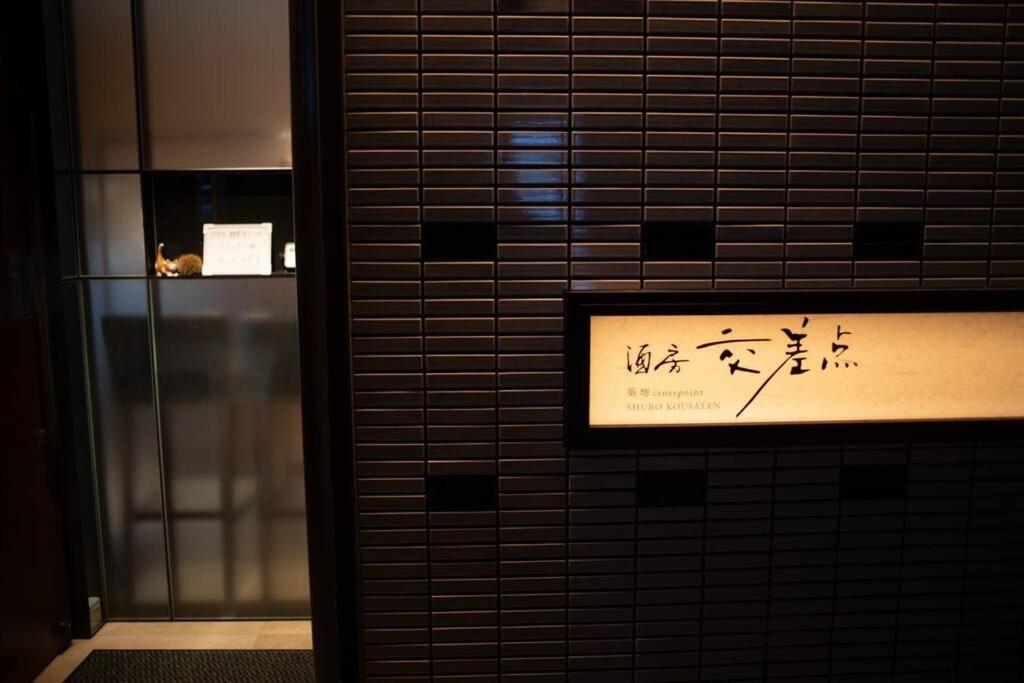 酒房 交差点
築地 crosspoint
SHUBO KOUSATEN